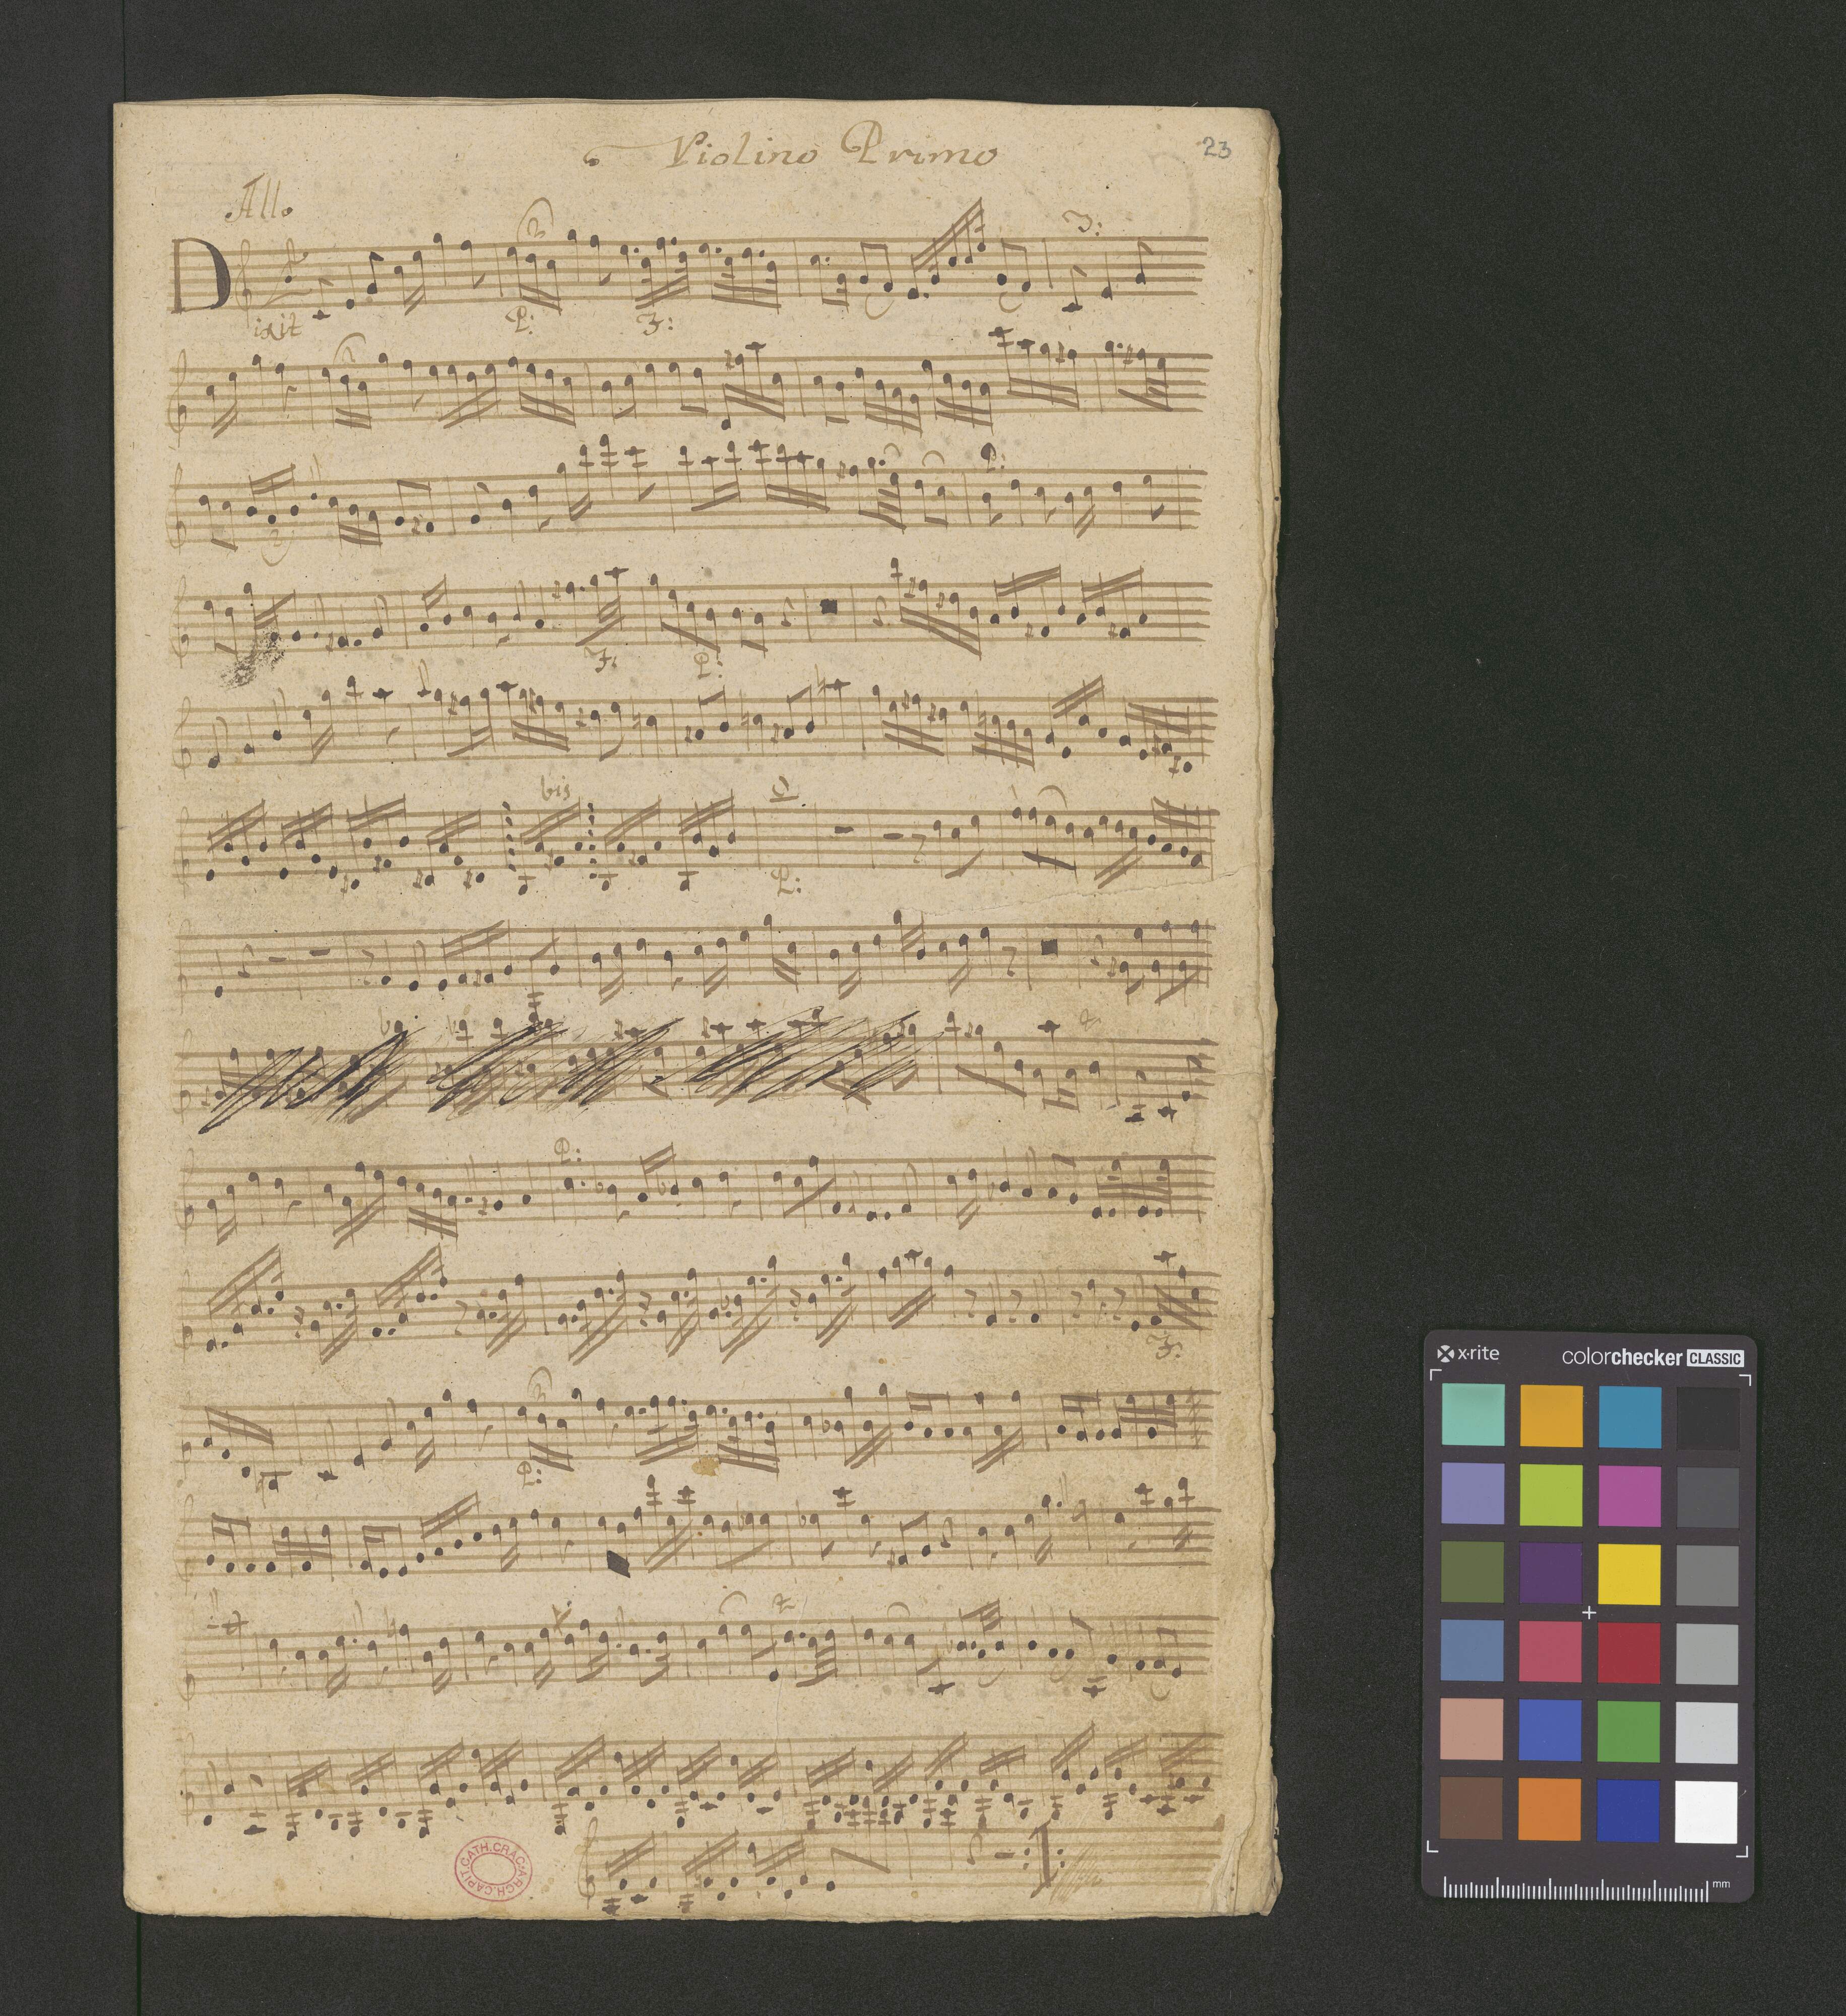 Violino Primo
23
All.o
3
F:
Dixit
P:
F:
3
3
P:
F:
P:
bis
P:
P:
F:
3
P:
ARCH.CAPIT.CATH.CRAC
x·rite
colorchecker CLASSIC
mm